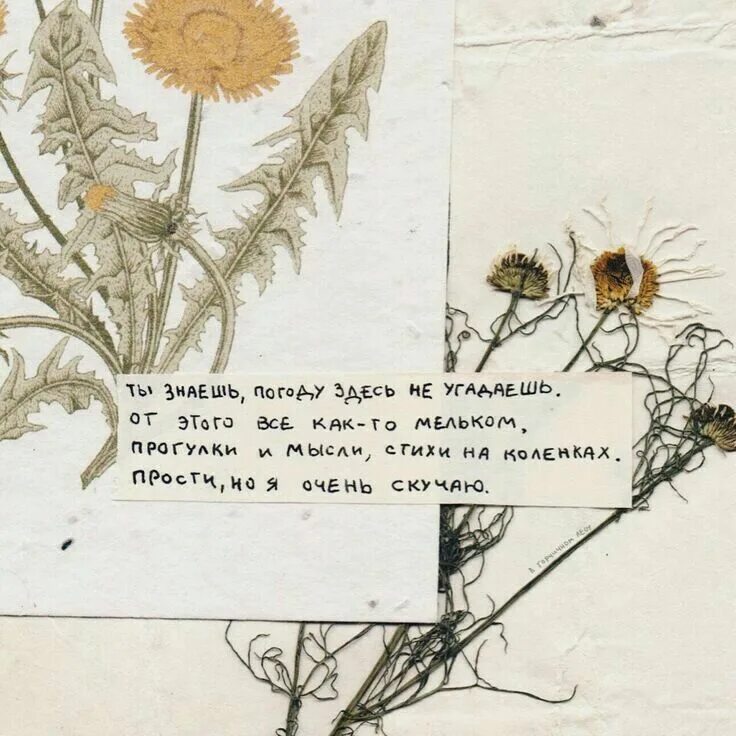 ты знаешь, погоду здесь не угадаешь.
от этого все как-то мельком,
прогулки и мысли, стихи на коленках.
прости, но я очень скучаю.
в горчичном лесу